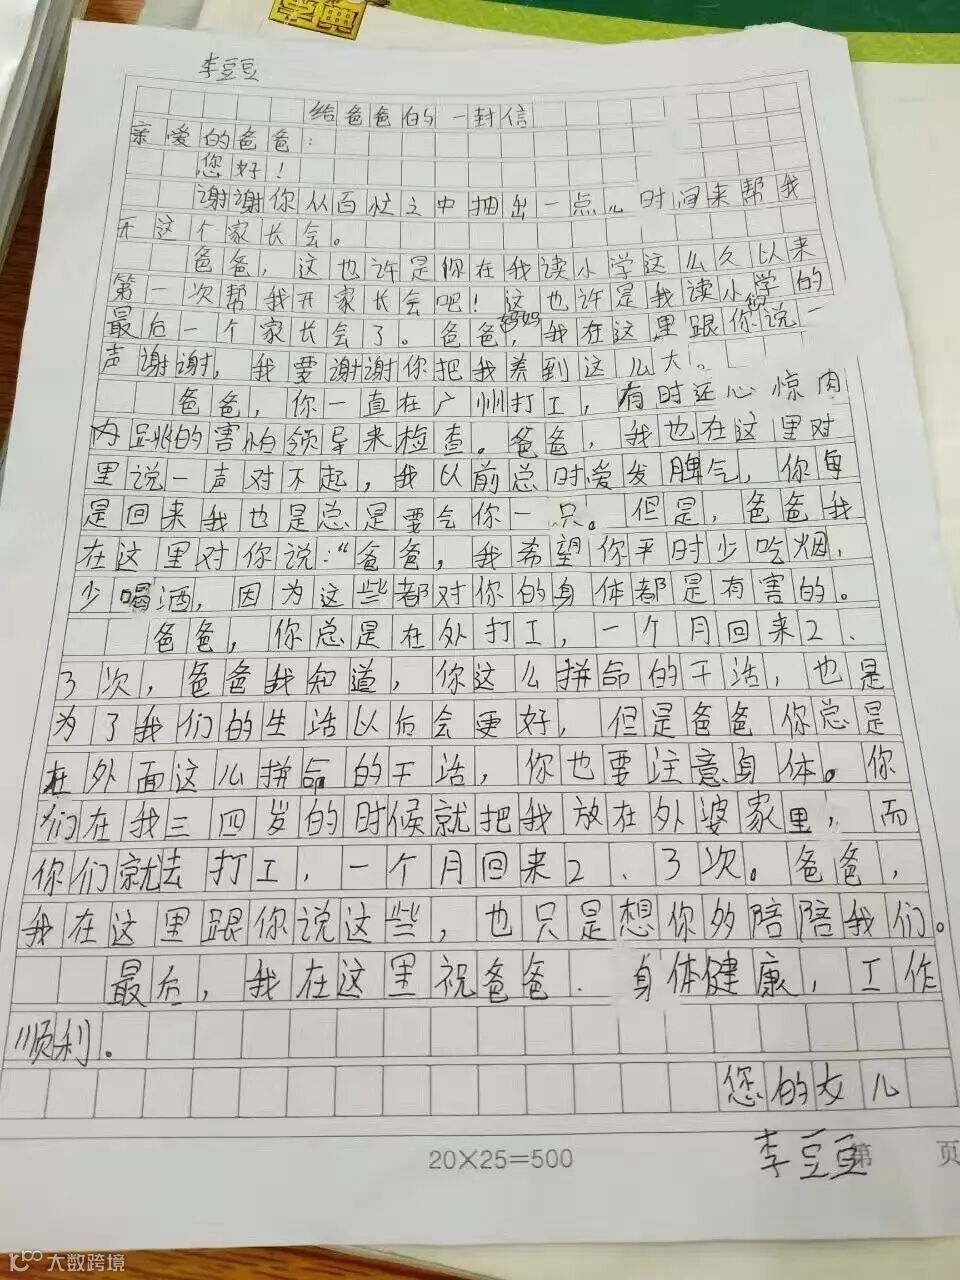 字典
李豆豆
给爸爸的一封信
亲爱的爸爸：
您好！
谢谢你从百忙之中抽出一点儿时间来帮我
开这个家长会。
爸爸，这也许是你在我读小学这么久以来
第一次帮我开家长会吧！这也许是我读小学的
最后一个家长会了。爸爸，妈妈，我在这里跟你们说一
声谢谢，我要谢谢你把我养到这么大。
爸爸，你一直在广州打工，有时还心惊肉
肉跳的害怕领导来检查。爸爸，我也在这里对
里说一声对不起，我以前总时爱发脾气，你每
是回来我也是总是要气你一只。但是，爸爸我
在这里对你说：“爸爸，我希望你平时少吃烟，
少喝酒，因为这些都对你的身体都是有害的。
爸爸，你总是在外打工，一个月回来2、
3次，爸爸我知道，你这么拼命的干活，也是
为了我们的生活以后会更好，但是爸爸你总是
在外面这么拼命的干活，你也要注意身体。你
们在我三四岁的时候就把我放在外婆家里，而
你们就去打工，一个月回来2、3次。爸爸，
我在这里跟你说这些，也只是想你多陪陪我们。
最后，我在这里祝爸爸．身体健康，工作
顺利。
您的女儿
李豆豆
20×25=500
第 页
大数跨境